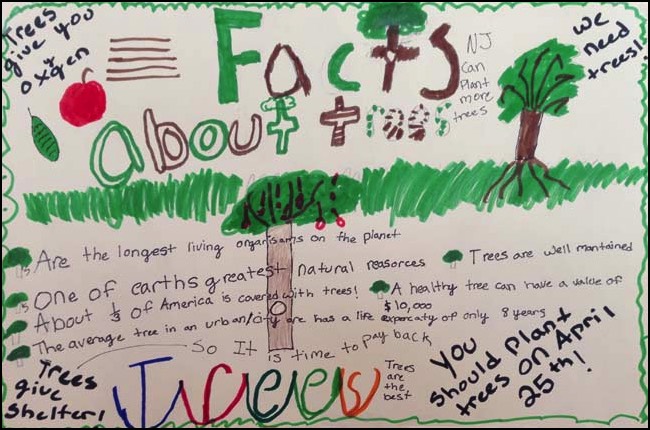 Trees
give you
oxgen
Facts
About trees
NJ
Can
Plant
more
trees
we
need
trees!
Are the longest living organisams on the planet
Trees are well mantained
One of earths greatest natural reasorces
A healthy tree can have a value of
$10,000
About 1/3 of America is covered with trees!
The average tree in an urban/city are has a life expercaty of only 8 years
So It is time to pay back
Trees
give
Shelter!
Trees
Trees
are
the
best
You
should plant
trees on April
25th!